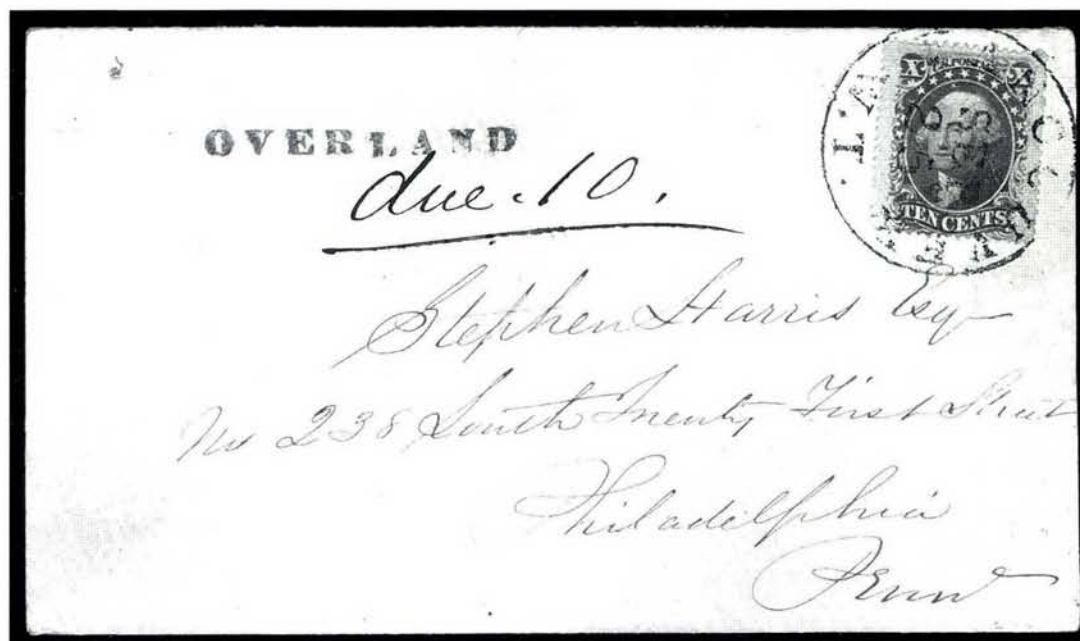 OVERLAND
due. 10.
X U.S. POSTAGE X
TEN CENTS
Stephen Harris Esq
No 238 South Twenty First Street
Philadelphia
Penn